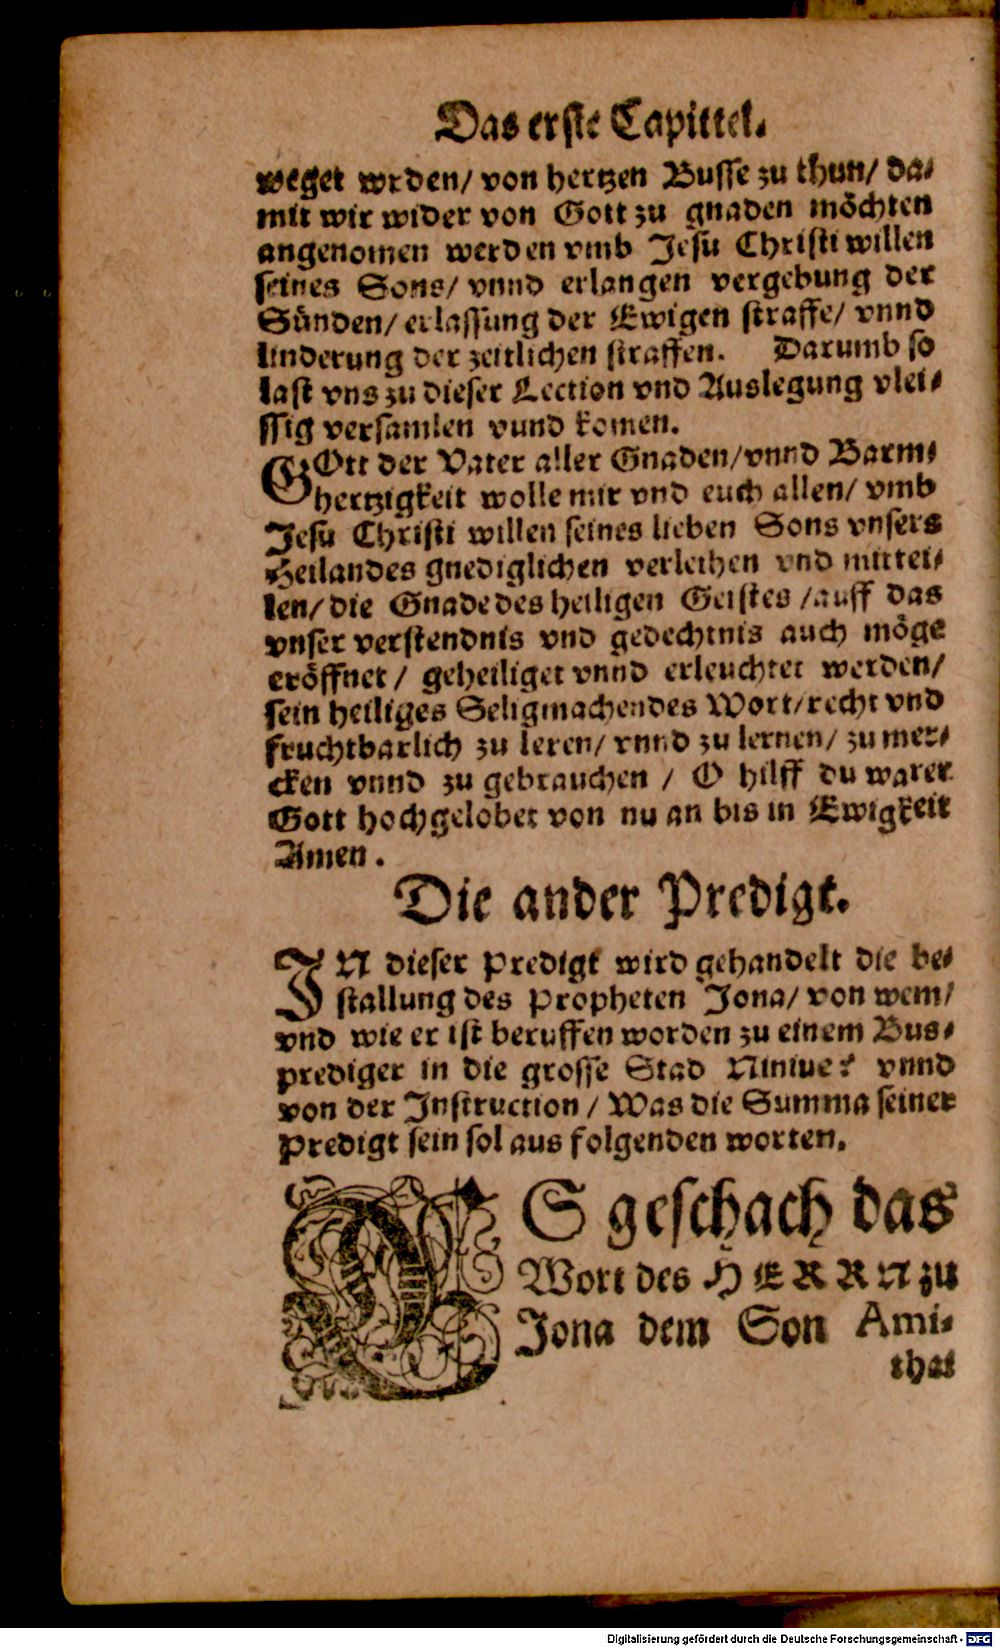 Das erste Capittel.
weget wrden/ von hertzen Busse zu thun/ da-
mit wir wider von Gott zu gnaden möchten
angenomen werden vmb Jesu Christi willen
seines Sons/ vnnd erlangen vergebung der
Sünden/ erlassung der Ewigen straffe/ vnnd
linderung der zeitlichen straffen. Darumb so
last vns zu dieser Lection vnd Auslegung vlei-
ssig versamlen vund komen.
GOtt der Vater aller Gnaden/ vnnd Barm-
hertzigkeit wolle mir vnd euch allen/ vmb
Jesu Christi willen seines lieben Sons vnsers
Heilandes gnediglichen verleihen vnd mittei-
len/ die Gnade des heiligen Geistes /auff das
vnser verstendnis vnd gedechtnis auch möge
eröffnet / geheiliget vnnd erleuchtet werden/
sein heiliges Seligmachendes Wort/ recht vnd
fruchtbarlich zu leren/ vnnd zu lernen/ zu mer-
cken vnnd zu gebrauchen / O hilff du warer
Gott hochgelobet von nu an bis in Ewigkeit
Amen.
Die ander Predigt.
IN dieser Predigt wird gehandelt die be-
stallung des Propheten Jona/ von wem/
vnd wie er ist beruffen worden zu einem Bus-
prediger in die grosse Stad Niniue: vnnd
von der Instruction / Was die Summa seiner
Predigt sein sol aus folgenden worten.
ES geschach das
Wort des HERRN zu
Jona dem Son Ami-
thai
Digitalisierung gefördert durch die Deutsche Forschungsgemeinschaft - DFG